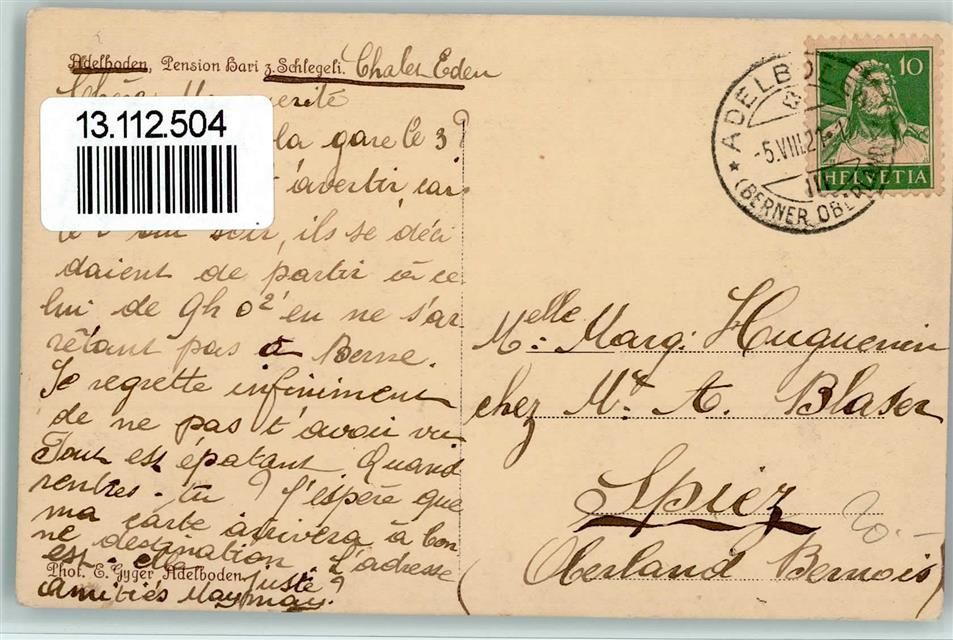 Adelboden, Pension Hari z. Schlegeli. Chalet Eden
Chère
13.112.504
la gare le 3?
t'avertir, car
soir, ils se déci
daient de partir à ce
lui de 9h 02' en ne s'ar
rêtant pas à Berne.
Je regrette infiniment
de ne pas t'avoir vu
Tout est épatant. Quand
rentres-tu? J'espère que
ma carte arrivera à bon
ne destination. L'adresse
est-elle juste?
Phot. E. Gyger Adelboden.
Amitiés
ADELBODEN
-5.VIII.21
(BERNER OBERLAND)
10
HELVETIA
Melle Marg. Huguenin
chez Mr. A. Blaser
Spiez
(Oberland Bernois)
20.-